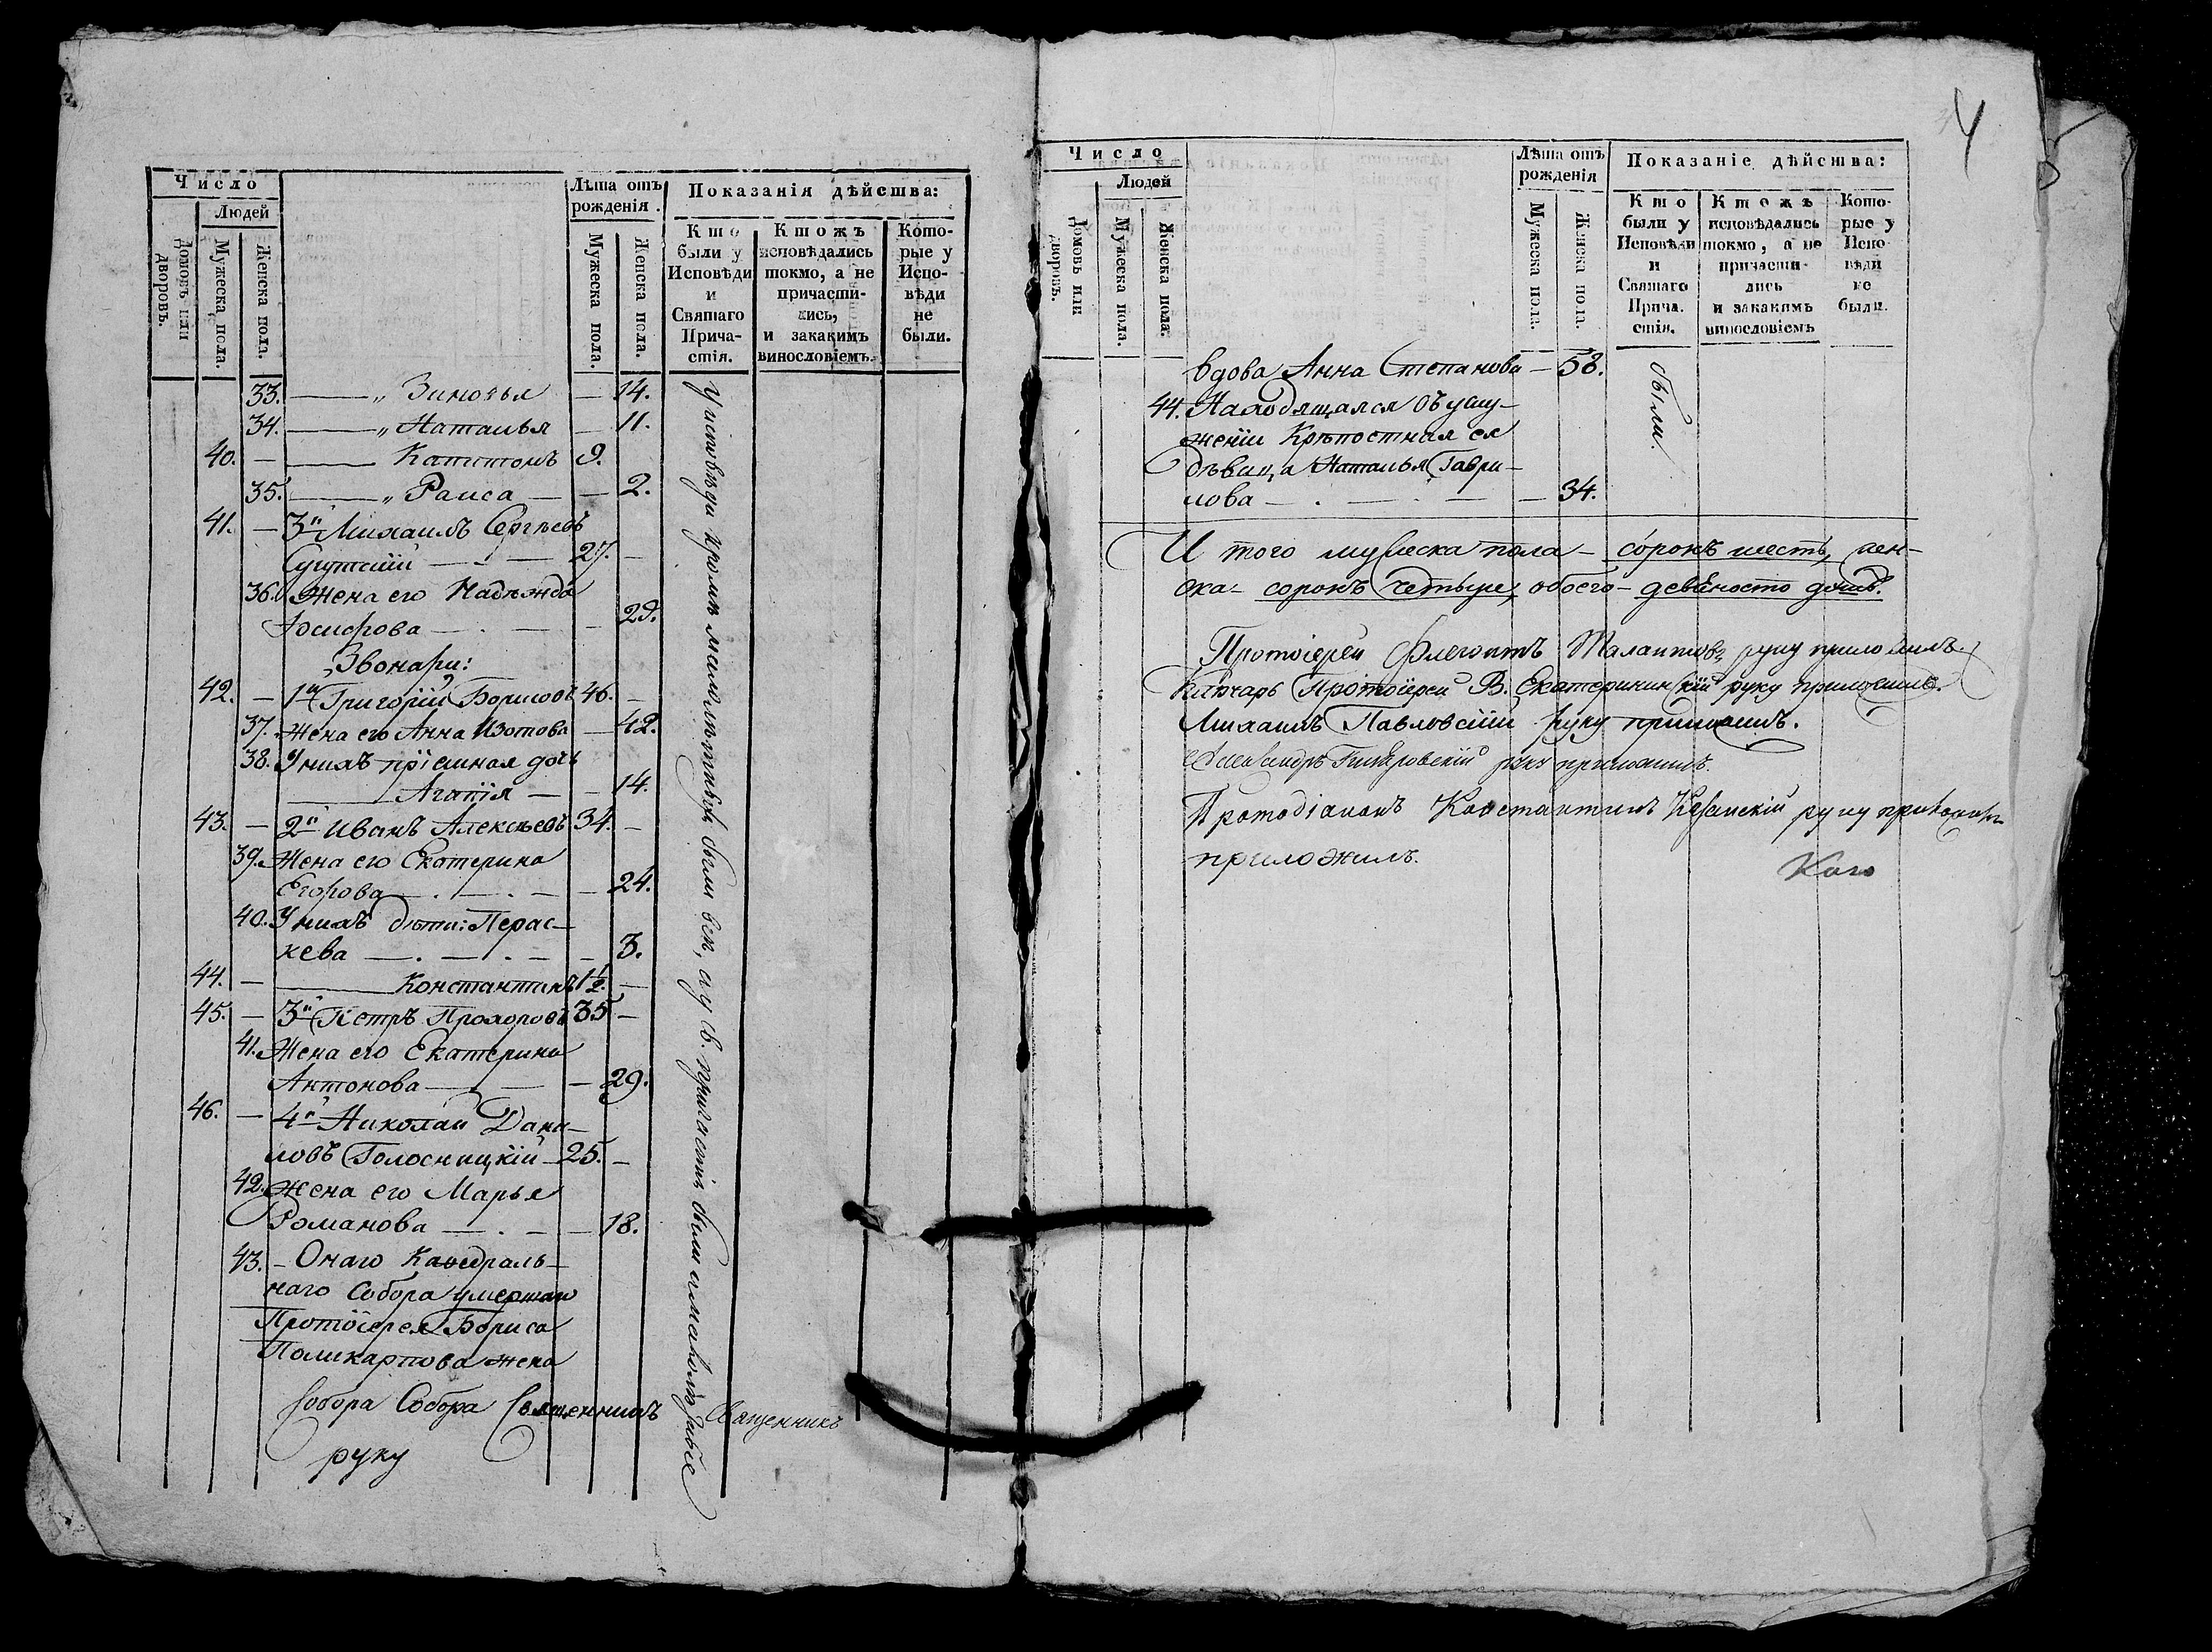 Число
Людей
Домовъ или дворовъ.
Мужеска пола.
Женска пола.
Лѣта отъ рожденія.
Мужеска пола.
Женска пола.
Показанія дѣйства:
Кто были у Исповѣди и Святаго Причастія.
Ктожъ исповѣдались токмо, а не причастились, и закакимъ винословіемъ.
Которые у Исповѣди не были.
33. — „ Зиновья — 14.
34. — „ Наталья — 11.
40. — — Капитонъ 9.
35. — „ Раиса — — 2.
41. — 3й Михаилъ Сергѣевъ
27. —
36. Жена его Надѣжда
— 29.
Звонари:
42. — 1й Григорій Борисовъ 46. —
37. Жена его Анна Изотова — 42.
38. У нихъ пріемная дочь
Агапія — — 14.
43. — 2й Иванъ Алексѣевъ 34. —
39. Жена его Екатерина
Егорова — . — . — — 24.
40. У нихъ дѣти: Парас-
кева — . — . — — 3.
44. — — Константинъ 1½. —
45. — 3й Петръ Прохоровъ 35 —
41. Жена его Екатерина
Антонова — . — — 29.
46. — 4й Николай Дани-
ловъ Голосницкій 25. —
42. Жена его Марья
Романова — . — — 18.
43. — Онаго Каѳедраль-
наго Собора умершаго
Протоіерея Бориса
Поликарпова жена
Собора Собора Священникъ Священникъ
руку
У исповѣди кромѣ малолѣтныхъ были всѣ, а у св. причастія были и малолѣтные
4
Число
Людей
Домовъ или дворовъ.
Мужеска пола.
Женска пола.
Лѣта отъ рожденія
Мужеска пола.
Женска пола.
Показаніе дѣйства:
Кто были у Исповѣди и Святаго Причастія.
Ктожъ исповѣдались токмо, а не причастились и закакимъ винословіемъ
Которые у Исповѣди не были.
вдова Анна Степанова — 58.
были.
44. Находящаяся въ услу-
женіи Крѣпостная ея
дѣвица Наталья Гаври-
лова — . — . — — 34.
И того мужеска пола — сорокъ шесть, жен-
ска — сорокъ четыре, обоего — девеносто душъ.
Протоіерей Флегонтъ Талантовъ руку приложилъ.
Ключарь Протоіерей В. Екатерининскій руку приложилъ.
Михаилъ Павловскій руку приложилъ.
Александръ руку приложилъ.
Протодіаконъ Константинъ Казанскій руку
приложилъ.
Кого